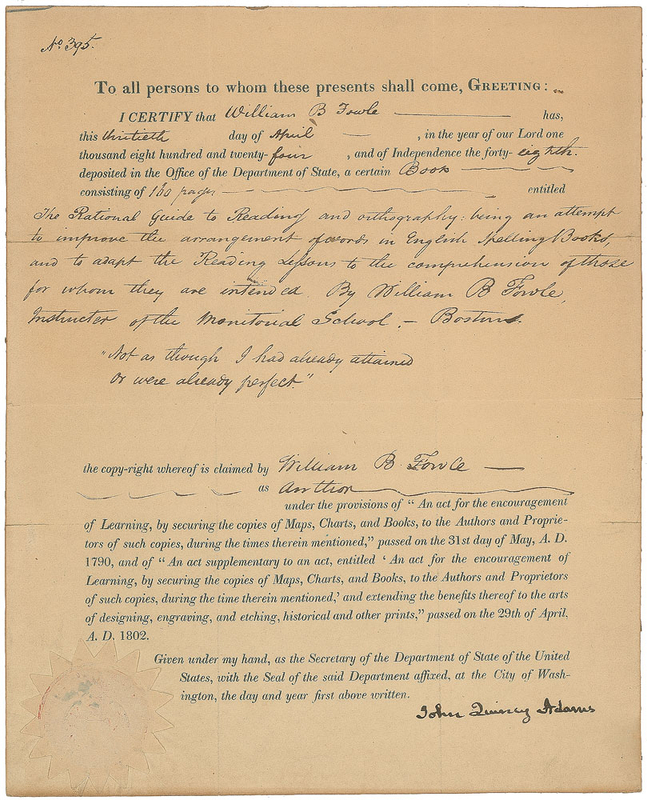 No. 395.
To all persons to whom these presents shall come, GREETING:
I CERTIFY that William B Fowle has,
this thirtieth day of April , in the year of our Lord one
thousand eight hundred and twenty-four , and of Independence the forty-eighth.
deposited in the Office of the Department of State, a certain Book
consisting of 160 pages entitled
The Rational Guide to Reading and orthography: being an attempt
to improve the arrangement of words in English Spelling Books,
and to adapt the Reading Lessons to the comprehension of those
for whom they are intended. By William B Fowle,
Instructer of the Monitorial School, – Boston.
"Not as though I had already attained
Or were already perfect."
the copy-right whereof is claimed by William B Fowle
as Author
under the provisions of "An act for the encouragement
of Learning, by securing the copies of Maps, Charts, and Books, to the Authors and Proprie-
tors of such copies, during the times therein mentioned," passed on the 31st day of May, A. D.
1790, and of "An act supplementary to an act, entitled 'An act for the encouragement of
Learning, by securing the copies of Maps, Charts, and Books, to the Authors and Proprietors
of such copies, during the time therein mentioned,' and extending the benefits thereof to the arts
of designing, engraving, and etching, historical and other prints," passed on the 29th of April,
A. D. 1802.
Given under my hand, as the Secretary of the Department of State of the United
States, with the Seal of the said Department affixed, at the City of Wash-
ington, the day and year first above written.
John Quincy Adams